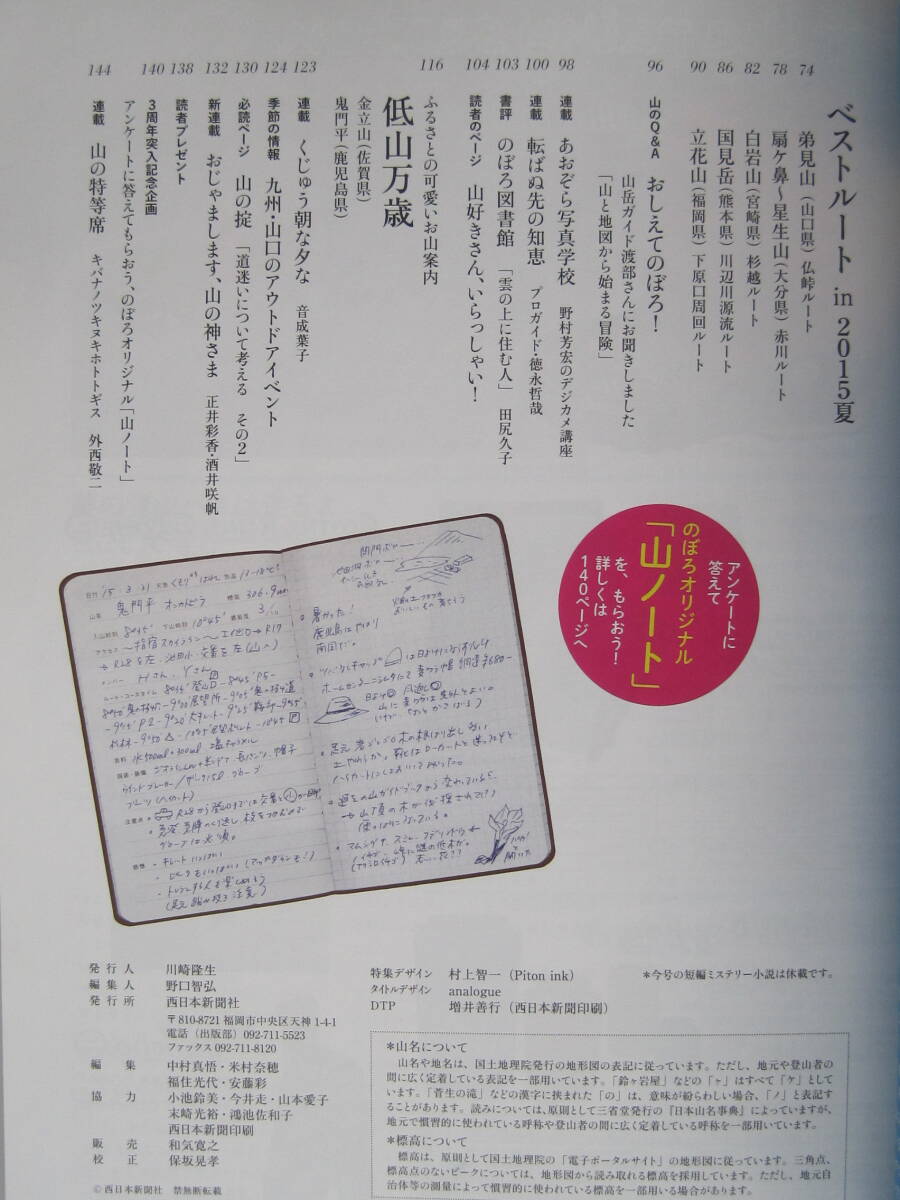 ベストルート in 2015夏
74 弟見山(山口県)仏峠ルート
78 扇ケ鼻〜星生山(大分県)赤川ルート
82 白岩山(宮崎県)杉越ルート
86 国見岳(熊本県)川辺川源流ルート
90 立花山(福岡県)下原口周回ルート
96 山のQ&A おしえてのぼろ!
山岳ガイド渡部さんにお聞きしました
「山と地図から始まる冒険」
98 連載 あおぞら写真学校 野村芳宏のデジカメ講座
100 連載 転ばぬ先の知恵 プロガイド・徳永哲哉
103 書評 のぼろ図書館 「雲の上に住む人」 田尻久子
104 読者のページ 山好きさん、いらっしゃい!
116 ふるさとの可愛いお山案内
低山万歳
金立山(佐賀県)
鬼門平(鹿児島県)
123 連載 くじゅう朝な夕な 音成葉子
124 季節の情報 九州・山口のアウトドアイベント
130 必読ページ 山の掟 「道迷いについて考える その2」
132 新連載 おじゃまします、山の神さま 正井彩香・酒井咲帆
138 読者プレゼント
140 3周年突入記念企画
アンケートに答えてもらおう、のぼろオリジナル「山ノート」
144 連載 山の特等席 キバナノツキヌキホトトギス 外西敬二
アンケートに
答えて
のぼろオリジナル
「山ノート」
を、もらおう!
詳しくは
140ページへ
日付 '15.3.21 天気 くもり 気温 13-18℃
山名 鬼門平 オンカドビラ 標高
入山時刻 8:45 下山時刻 10:45
アクセス
メンバー Hさん、Yさん
ルート・コースタイム
食料 水500ml
服装・装備
注意点
感想
暑かった!
鹿児島はやはり
南国だ。
発行人 川崎隆生
編集人 野口智弘
発行所 西日本新聞社
〒810-8721 福岡市中央区天神 1-4-1
電話(出版部)092-711-5523
ファックス 092-711-8120
編集 中村真悟・米村奈穂
福住光代・安藤彩
協力 小池鈴美・今井走・山本愛子
末崎光裕・鴻池佐和子
西日本新聞印刷
販売 和気寛之
校正 保坂晃孝
©西日本新聞社 禁無断転載
特集デザイン 村上智一(Piton ink)
タイトルデザイン analogue
DTP 増井善行(西日本新聞印刷)
*今号の短編ミステリー小説は休載です。
*山名について
山名や地名は、国土地理院発行の地形図の表記に従っています。ただし、地元や登山者の
間に広く定着している表記を一部用いています。「鈴ヶ岩屋」などの「ヶ」はすべて「ケ」とし
ています。「菅生の滝」などの漢字に挟まれた「の」は、意味が紛らわしい場合、「ノ」と表記す
ることがあります。読みについては、原則として三省堂発行の『日本山名事典』によっていますが、
地元で慣習的に使われている呼称や登山者の間に広く定着している呼称を一部用いています。
*標高について
標高は、原則として国土地理院の「電子ポータルサイト」の地形図に従っています。三角点、
標高点のないピークについては、地形図から読み取れる標高を採用しています。ただし、地元自
治体等の測量によって慣習的に使われている標高を一部用いる場合があります。